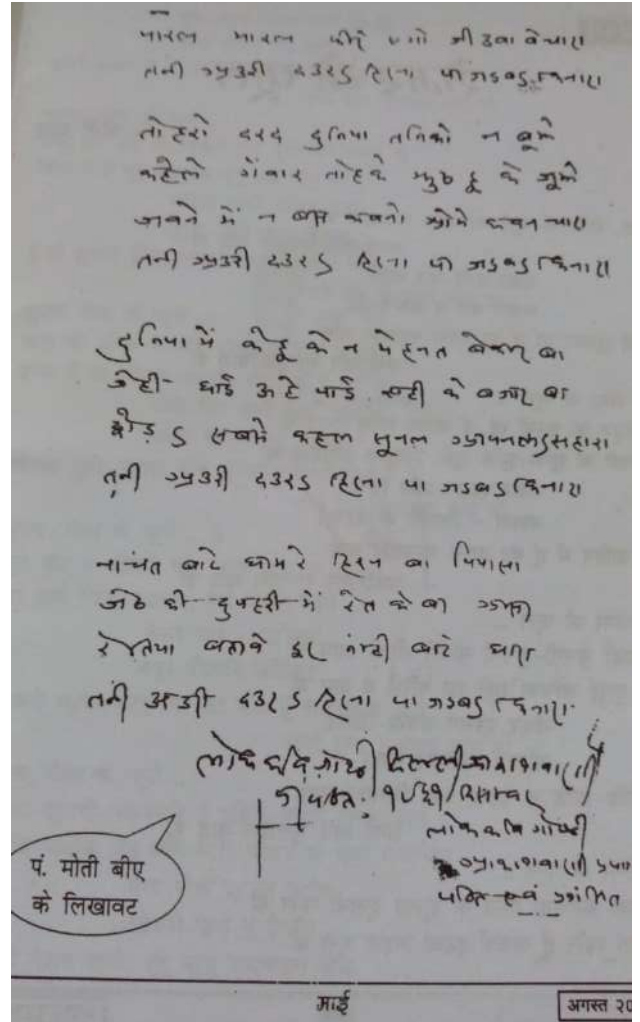 मारल मारल फिरे जीउवा बेचारा
तनी अउरी दउरऽ हिरना पा जइबऽ किनारा
तोहरो दरद दुनिया तनिको न बूझे
कहेले गँवार तोहके झुठहू के जूझे
जवने में न बस कवनो ओमे कवन चारा
तनी अउरी दउरऽ हिरना पा जइबऽ किनारा
दुनिया में केहू के न मेहनत बेकार बा
जेही धाई ऊहे पाई के बजार बा
छोड़ऽ सबके कहल सूनल सहारा
तनी अउरी दउरऽ हिरना पा जइबऽ किनारा
नाचत बाटे घाम रे हिरन बा पियासा
जेठ की दुपहरी में रेत के बा आसा
रेतिया बतावे दूर नाहीं बाटे धारा
तनी अउरी दउरऽ हिरना पा जइबऽ किनारा
लोक कवि गोष्ठी दिल्ली आकाशवाणी
दिसम्बर
लोककवि गोष्ठी
आकाशवाणी
एवं
पं. मोती बीए
के लिखावट
माई
अगस्त २०